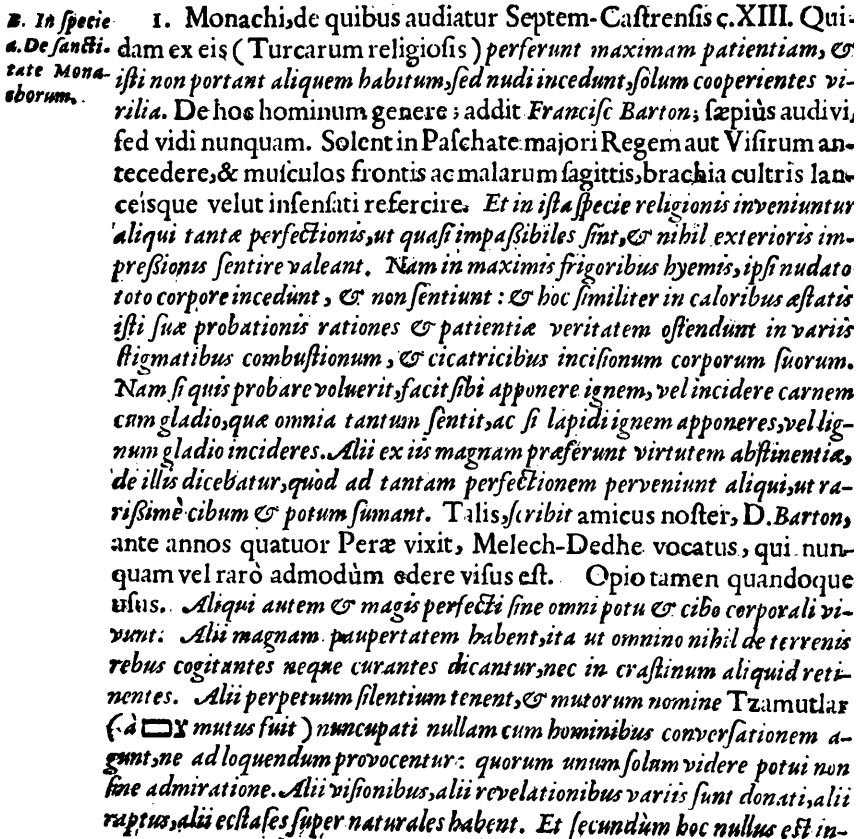 B. In specie
a. De sancti-
tate Mona-
chorum.
1. Monachi, de quibus audiatur Septem-Castrensis c. XIII. Qui-
dam ex eis (Turcarum religiosis) perferunt maximam patientiam, &
isti non portant aliquem habitum, sed nudi incedunt, solum cooperientes vi-
rilia. De hoc hominum genere; addit Francisc Barton; sæpiùs audivi,
sed vidi nunquam. Solent in Paschate majori Regem aut Visirum an-
tecedere, & musculos frontis ac malarum sagittis, brachia cultris lan-
ceisque velut insensati refercire. Et in ista specie religionis inveniuntur
aliqui tantæ perfectionis, ut quasi impassibiles sint, & nihil exterioris im-
pressionis sentire valeant. Nam in maximis frigoribus hyemis, ipsi nudato
toto corpore incedunt, & non sentiunt: & hoc similiter in caloribus æstatis
isti suæ probationis rationes & patientiæ veritatem ostendunt in variis
stigmatibus combustionum, & cicatricibus incisionum corporum suorum.
Nam si quis probare voluerit, facit sibi apponere ignem, vel incidere carnem
cum gladio, quæ omnia tantum sentit, ac si lapidi ignem apponeres, vel lig-
num gladio incideres. Alii ex iis magnam præferunt virtutem abstinentiæ,
de illis dicebatur, quòd ad tantam perfectionem perveniunt aliqui, ut ra-
rissimè cibum & potum sumant. Talis, scribit amicus noster, D. Barton,
ante annos quatuor Peræ vixit, Melech-Dedhe vocatus, qui nun-
quam vel rarò admodùm edere visus est. Opio tamen quandoque
usus. Aliqui autem & magis perfecti sine omni potu & cibo corporali vi-
vunt. Alii magnam paupertatem habent, ita ut omnino nihil de terrenis
rebus cogitantes neque curantes dicantur, nec in crastinum aliquid reti-
nentes. Alii perpetuum silentium tenent, & mutorum nomine Tzamutlar
(à mutus fuit) nuncupati nullam cum hominibus conversationem a-
gunt, ne ad loquendum provocentur: quorum unum solum videre potui non
sine admiratione. Alii visionibus, alii revelationibus variis sunt donati, alii
raptus, alii ecstases super naturales habent. Et secundùm hoc nullus est in-